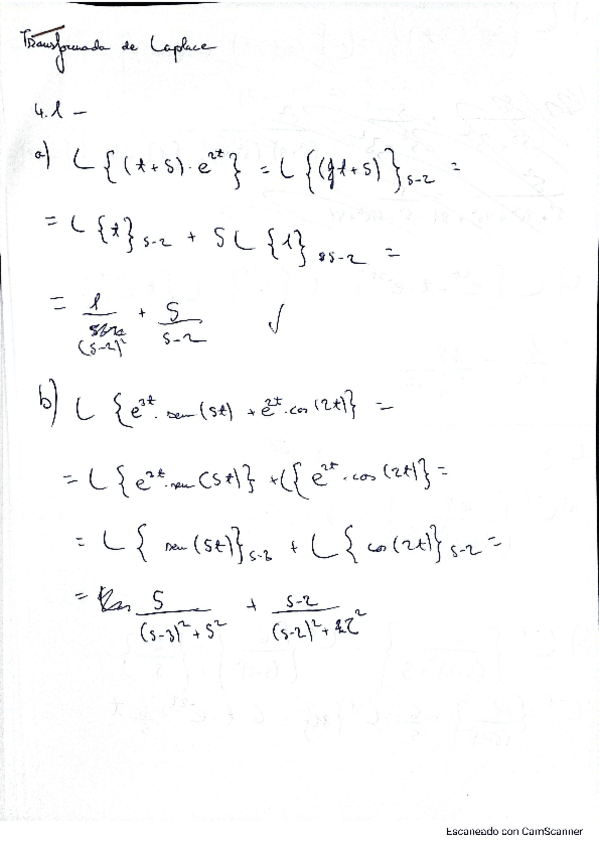 Transformada de Laplace
4.1 -
a) L{(t+5)·e^{2t}} = L{(t+5)}_{s-2} =
= L{t}_{s-2} + 5L{1}_{s-2} =
= 1/(s-2)² + 5/(s-2) ✓
b) L{e^{3t}·sen(5t) + e^{2t}·cos(2t)} =
= L{e^{3t}·sen(5t)} + L{e^{2t}·cos(2t)} =
= L{sen(5t)}_{s-3} + L{cos(2t)}_{s-2} =
= 5/((s-3)²+5²) + (s-2)/((s-2)²+2²)
Escaneado con CamScanner